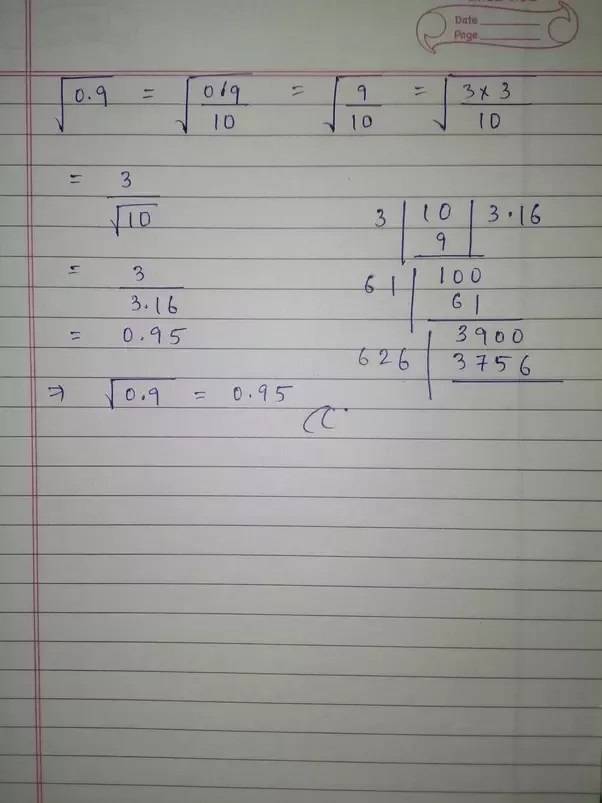 Date
Page
√0.9 = √(09/10) = √(9/10) = √(3×3/10)
= 3/√10
= 3/3.16
= 0.95
⇒ √0.9 = 0.95
3 | 10 | 3.16
9
61 | 100
61
626 | 3900
3756